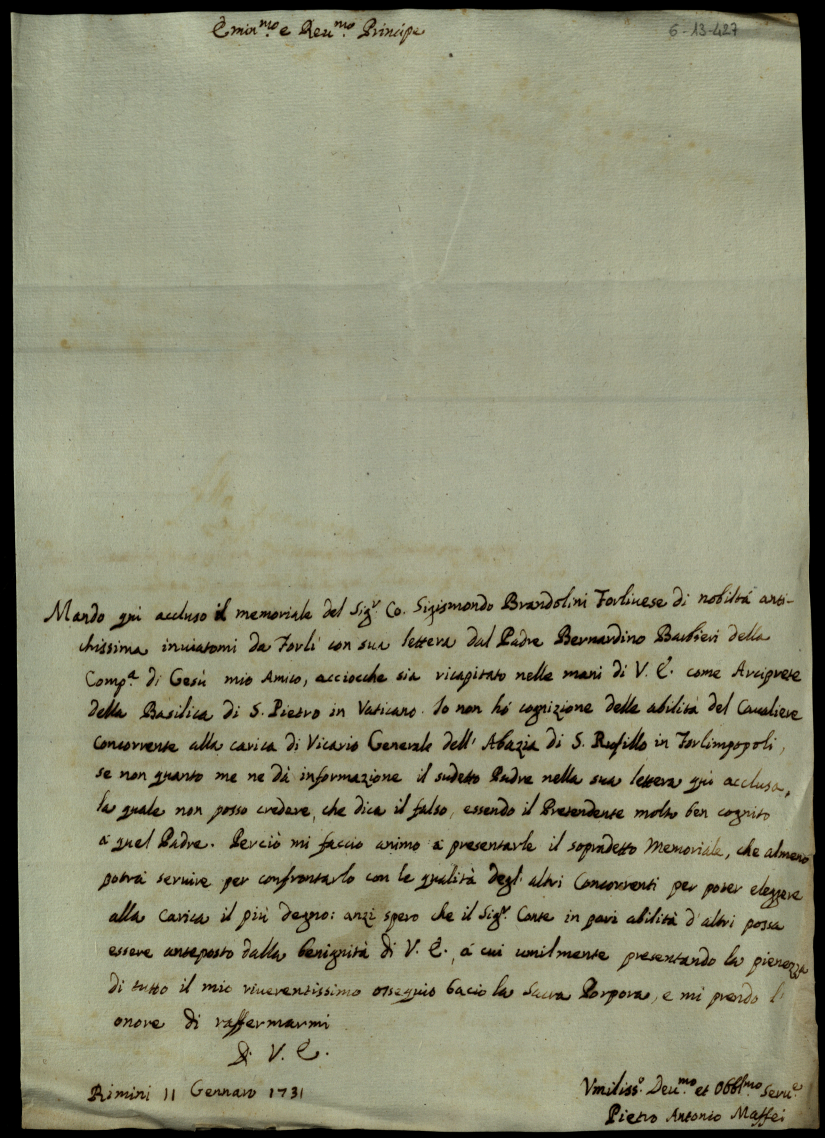 6-13-427
Emin.mo e Reu.mo Principe
Mando qui accluso il memoriale del Sig.r Co. Sigismondo Brandolini Forliuese di nobiltà anti-
chissima inuiatomi da Forlì con sua lettera dal Padre Bernardino Barbieri della
Comp.a di Gesù mio Amico, acciocche sia ricapitato nelle mani di V. E. come Arciprete
della Basilica di S. Pietro in Vaticano. Io non hò cognizione delle abilità del Caualiere
Concorrente alla carica di Vicario Generale dell' Abazia di S. Rufillo in Forlimpopoli,
se non quanto me ne dà informazione il sudetto Padre nella sua lettera quì acclusa,
la quale non posso credere, che dica il falso, essendo il Pretendente molto ben cognito
à quel Padre. Perciò mi faccio animo à presentarle il sopradetto Memoriale, che almeno
potrà seruire per confrontarlo con le qualità degl' altri Concorrenti per poter eleggere
alla carica il più degno: anzi spero che il Sig.r Conte in pari abilità d'altri possa
essere anteposto dalla benignità di V. E., à cui umilmente presentando la pienezza
di tutto il mio riuerentissimo ossequio bacio la Sacra Porpora, e mi prendo l'
onore di raffermarmi
Di V. E.
Rimini 11 Gennaro 1731
Vmiliss.o Deu.mo et Obbl.mo Seru.e
Pietro Antonio Maffei